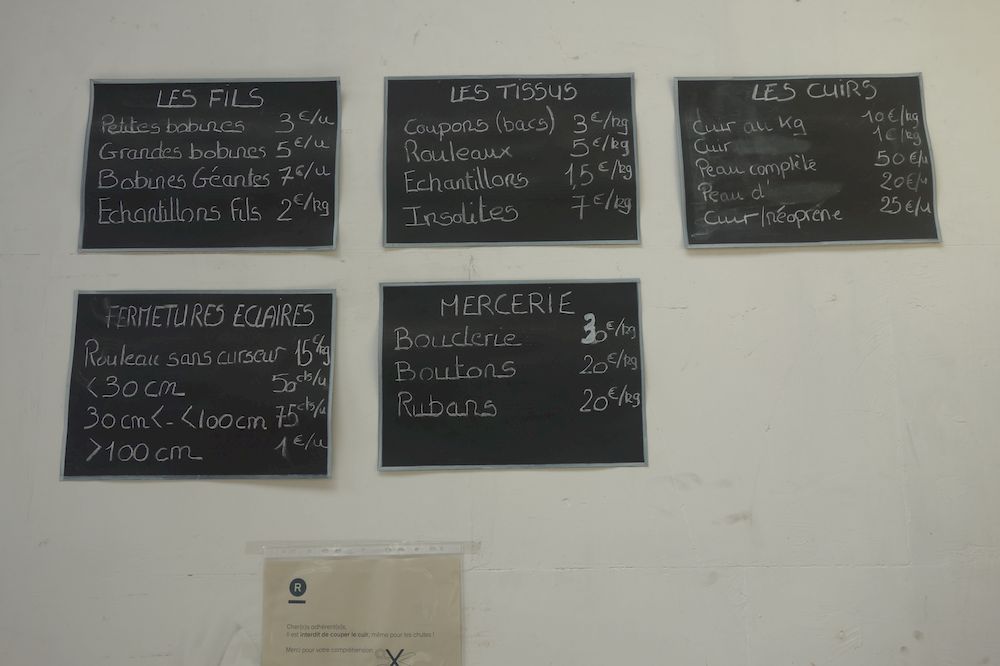 LES FILS
Petites bobines 3€/u
Grandes bobines 5€/u
Bobines Géantes 7€/u
Echantillons fils 2€/kg
LES TISSUS
Coupons (bacs) 3€/kg
Rouleaux 5€/kg
Echantillons 1,5€/kg
Insolites 7€/kg
LES CUIRS
Cuir au Kg 10€/kg
Cuir 1€/kg
Peau complète 50€/u
Peau d' 20€/u
Cuir/néoprène 25€/u
FERMETURES ECLAIRES
Rouleau sans curseur 15€/kg
<30cm 50cts/u
30cm<-<100cm 75cts/u
>100cm 1€/u
MERCERIE
Bouclerie 30€/kg
Boutons 20€/kg
Rubans 20€/kg
R
Cher(e)s adhérent(e)s,
Il est interdit de couper le cuir, même pour les chutes !
Merci pour votre compréhension